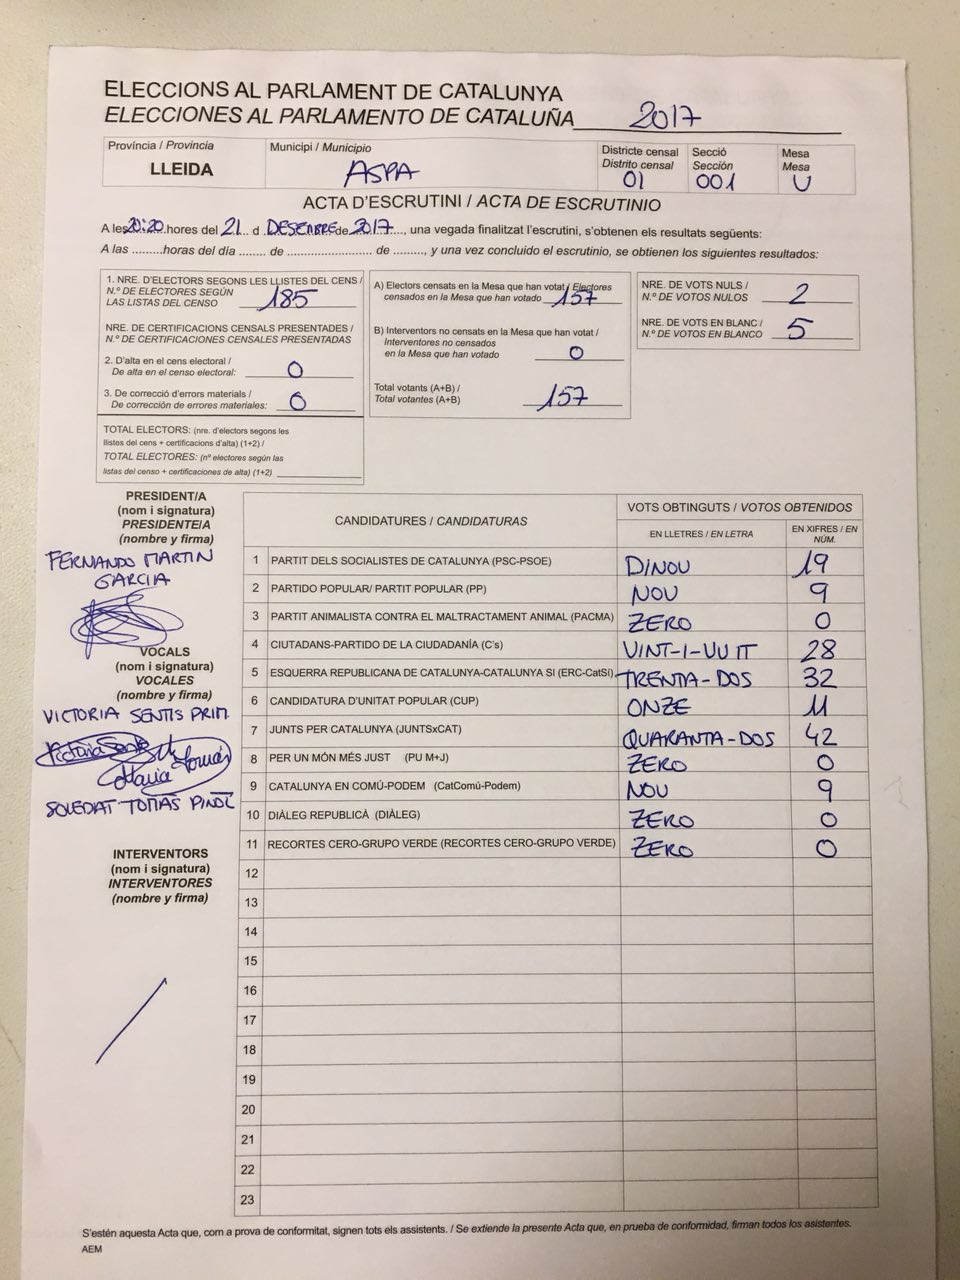 ELECCIONS AL PARLAMENT DE CATALUNYA
ELECCIONES AL PARLAMENTO DE CATALUÑA 2017
Província / Provincia
LLEIDA
Municipi / Municipio
ASPA
Districte censal
Distrito censal
01
Secció
Sección
001
Mesa
Mesa
U
ACTA D'ESCRUTINI / ACTA DE ESCRUTINIO
A les 20:20 hores del 21 d DESEMBRE de 2017, una vegada finalitzat l'escrutini, s'obtenen els resultats següents:
A las ......... horas del día ........ de ......................... de ........., y una vez concluido el escrutinio, se obtienen los siguientes resultados:
1. NRE. D'ELECTORS SEGONS LES LLISTES DEL CENS /
N.º DE ELECTORES SEGÚN
LAS LISTAS DEL CENSO 185
NRE. DE CERTIFICACIONS CENSALS PRESENTADES /
N.º DE CERTIFICACIONES CENSALES PRESENTADAS
2. D'alta en el cens electoral /
De alta en el censo electoral: 0
3. De correcció d'errors materials /
De corrección de errores materiales: 0
TOTAL ELECTORS: (nre. d'electors segons les
llistes del cens + certificacions d'alta) (1+2) /
TOTAL ELECTORES: (nº electores según las
listas del censo + certificaciones de alta) (1+2)
A) Electors censats en la Mesa que han votat / Electores
censados en la Mesa que han votado 157
B) Interventors no censats en la Mesa que han votat /
Interventores no censados
en la Mesa que han votado 0
Total votants (A+B) /
Total votantes (A+B) 157
NRE. DE VOTS NULS /
N.º DE VOTOS NULOS 2
NRE. DE VOTS EN BLANC /
N.º DE VOTOS EN BLANCO 5
PRESIDENT/A
(nom i signatura)
PRESIDENTE/A
(nombre y firma)
FERNANDO MARTIN
GARCIA
VOCALS
(nom i signatura)
VOCALES
(nombre y firma)
VICTORIA SENTIS PRIM
SOLEDAT TOMÀS PINOL
INTERVENTORS
(nom i signatura)
INTERVENTORES
(nombre y firma)
CANDIDATURES / CANDIDATURAS
VOTS OBTINGUTS / VOTOS OBTENIDOS
EN LLETRES / EN LETRA
EN XIFRES / EN
NÚM.
1 PARTIT DELS SOCIALISTES DE CATALUNYA (PSC-PSOE) DINOU 19
2 PARTIDO POPULAR/ PARTIT POPULAR (PP) NOU 9
3 PARTIT ANIMALISTA CONTRA EL MALTRACTAMENT ANIMAL (PACMA) ZERO 0
4 CIUTADANS-PARTIDO DE LA CIUDADANÍA (C's) VINT-I-VUIT 28
5 ESQUERRA REPUBLICANA DE CATALUNYA-CATALUNYA SI (ERC-CatSí) TRENTA-DOS 32
6 CANDIDATURA D'UNITAT POPULAR (CUP) ONZE 11
7 JUNTS PER CATALUNYA (JUNTSxCAT) QUARANTA-DOS 42
8 PER UN MÓN MÉS JUST (PU M+J) ZERO 0
9 CATALUNYA EN COMÚ-PODEM (CatComú-Podem) NOU 9
10 DIÀLEG REPUBLICÀ (DIÀLEG) ZERO 0
11 RECORTES CERO-GRUPO VERDE (RECORTES CERO-GRUPO VERDE) ZERO 0
12
13
14
15
16
17
18
19
20
21
22
23
S'estén aquesta Acta que, com a prova de conformitat, signen tots els assistents. / Se extiende la presente Acta que, en prueba de conformidad, firman todos los asistentes.
AEM